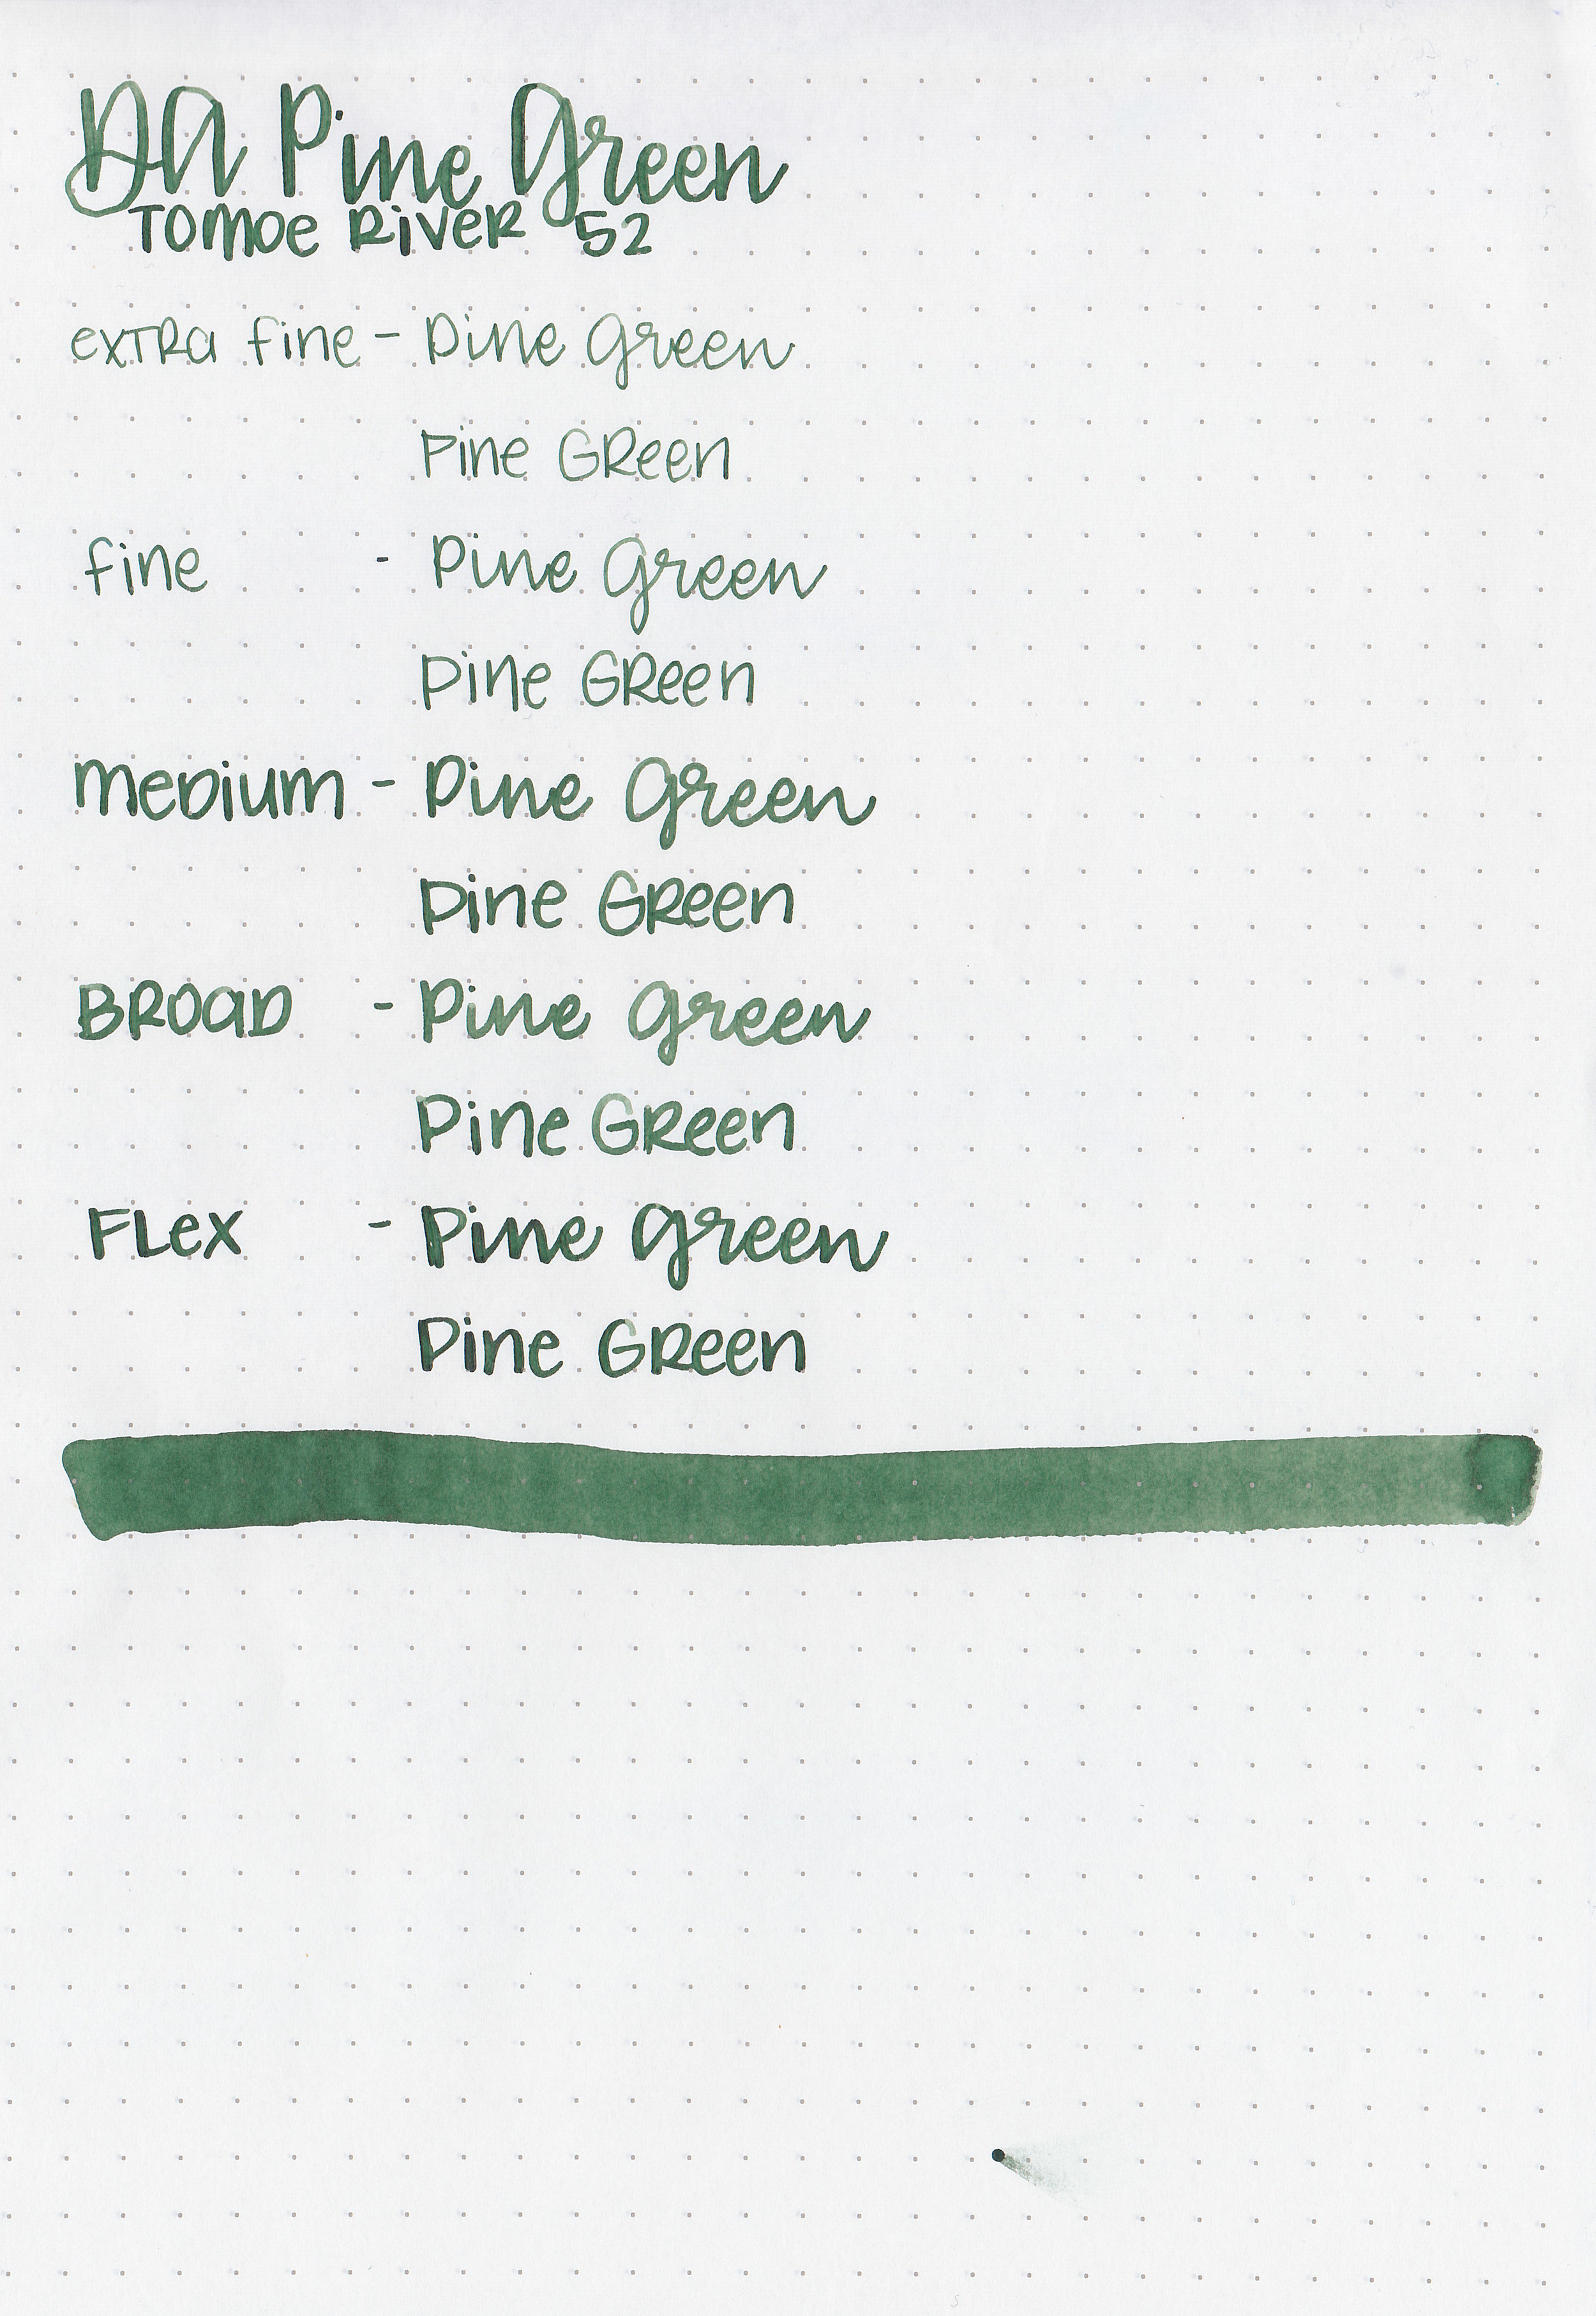 DA Pine Green
TOMOE RiVER 52
exTRa fine - Pine Green
Pine GReen
fine - Pine Green
Pine GReen
MeDiUM - Pine Green
Pine GReen
BROaD - Pine Green
Pine GReen
FLex - Pine Green
Pine GReen